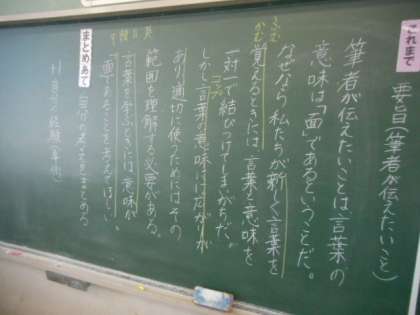 これまで
要旨(筆者が伝えたいこと)
筆者が伝えたいことは、言葉の
意味は「面」であるということだ。
なぜなら、私たちが新しく言葉を
覚えるときには、言葉と意味を
一対一で結びつけてしまいがちだ。
しかし、言葉の意味には広がりが
あり、適切に使うためにはその
範囲を理解する必要がある。
言葉を学ぶときには、意味が
「面」であることを考えてほしい。
まとめ
めあて
自分の考えをまとめる